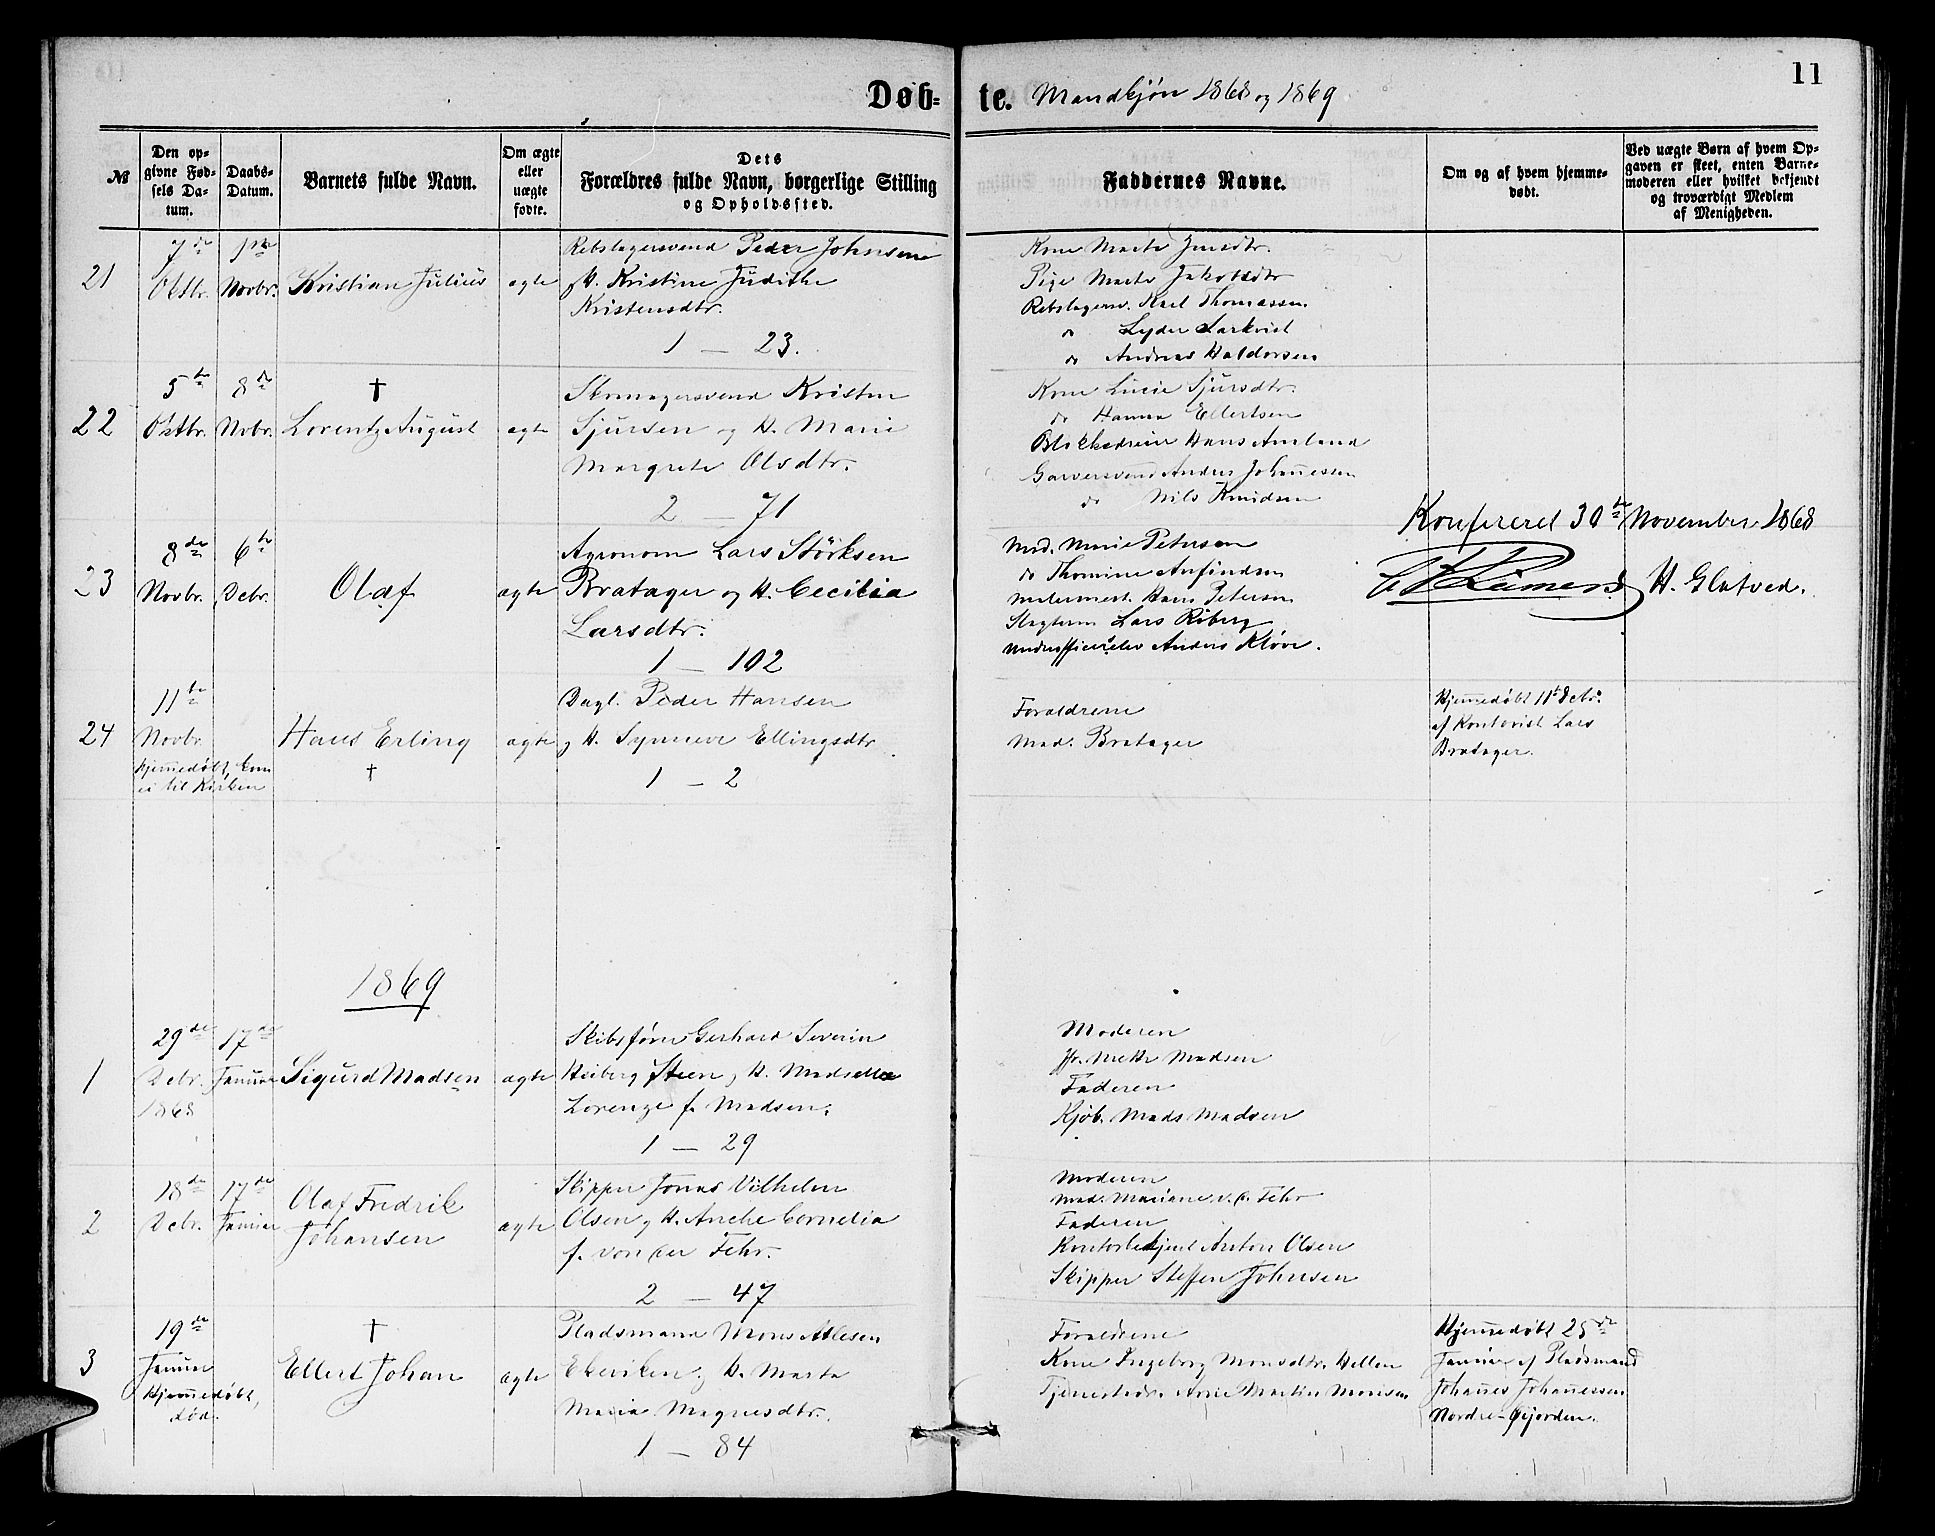 11
Døb-te. Mandkjøn 1868 og 1869
№
Den opgivne Fødsels Datum.
Daabs-Datum.
Barnets fulde Navn.
Om ægte eller uægte fødte.
Dets Forældres fulde Navn, borgerlige Stilling og Opholdssted.
Faddernes Navne.
Om og af hvem hjemmedøbt.
Ved uægte Børn af hvem Opgaven er skeet, enten Barnemoderen eller hvilket bekjendt og troværdigt Medlem af Menigheden.
21
7de Oktbr.
1ste Novbr.
Kristian Julius
ægte
Rebslagersvend Peder Johnsen
og H. Kristine Judithe
Kristensdtr.
1 — 23.
Kone Marte
Pige Marte Jakobsdtr
Rebslagersv. Karl Thomassen
do Lyder
do Andreas Haldorsen
22
5te Oktbr.
8de Novbr.
†
Lorentz August
ægte
Skomagersvend Kristen
Sjursen og H. Marie
Margrete Olsdtr.
2 — 71
Kone Lucie Sjursdtr.
do Hanna Ellertsen
Hans Amland
Garversvend Anders Johannessen
do Nils Knudsen
Konfereret 30te November 1868
H. Glatved.
23
8de Novbr.
6te Debr.
Olaf
ægte
Agronom Lars Störksen
Bratager og H. Cecilia
Larsdtr.
1 — 102
Mad. Marie Petersen
do Thomine Anfindsen
Malermest. Hans Petersen
Slagterm Lars Riberg
Underofficerelev Anders Kløve.
24
11te Novbr.
Hjemmedøbt, kom
ei til Kirken
Hans Erling
†
ægte
Dagl. Peder Hansen
og H. Synneve Ellingsdtr
1 — 2
Forældrene
Mad. Bratager
Hjemmedøbt 11te Debr.
af Kontorist Lars
Bratager.
1869
1
29de Debr. 1868
17de Januar
Sigurd Madsen
ægte
Skibsfører Gerhard Severin
Heiberg Steen og H. Madsella
Lorenze f. Madsen.
1 — 29
Moderen
Jfr. Mette Madsen
Faderen
Kjøb. Mads Madsen
2
18de Debr.
17de Januar
Olaf Fredrik
Johansen
ægte
Skipper Jonas Vilhelm
Olsen og H. Anche Cornelia
f. von der Fehr.
2 — 47
Moderen
Mad. Mariane v. d. Fehr
Faderen
Kontorbetjent Anton Olsen
Skipper Steffen Johnsen
3
19de Januar
Hjemmedøbt,
død.
†
Ellert Johan
ægte
Pladsmand Mons Atlesen
Ekeviken og H. Marta
Maria Magnesdtr.
1 — 84
Forældrene
Kone Ingeborg Monsdtr. Hellen
Tjenestedr. Arne Martin Monsen
Hjemmedøbt 25de
Januar af Pladsmand
Johannes Johannessen
Nordre-Gjorden.